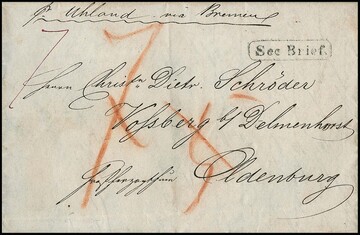 pr Uhland via Bremen
See Brief.
7
Herrn Christn Dietr. Schröder
Vossberg b/ Delmenhorst
Großherzogthum Oldenburg